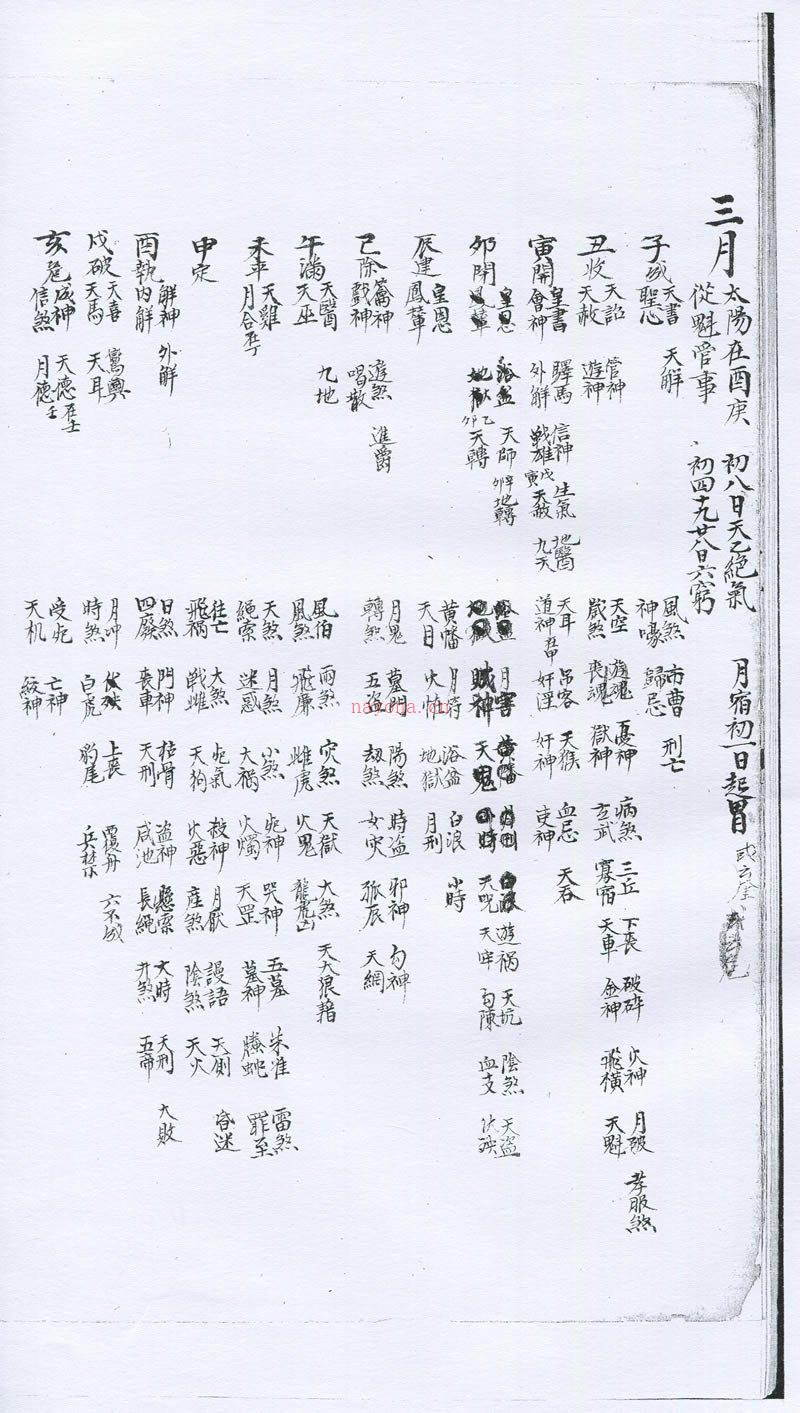 三月 太陽在酉庚 初八日天乙絕氣 月宿初一日起胃
從魁管事 初四十九廿八日六窮
子成 天書 天解
聖心
丑收 天詔 管神
天赦 遊神
寅開 皇書 驛馬 信神 生氣 地醫
會神 外解 戰雄 戊寅天赦 九天
卯閉 皇恩 浴盆 天師 地轉
地獄 乙卯天轉
辰建 皇恩
鳳輦
巳除 遊煞 進爵
戲神 唱散
午滿 天醫 九地
天巫
未平 天雞
月合在丁
申定
酉執 解神 外解
內解
戌破 天喜
天馬 天耳
亥危 成神 天德在壬
信煞 月德壬
風煞 市曹 刑亡
神嚎 歸忌
天空 遊魂 憂神 病煞 三丘 下喪 破碎 火神 月破 孝服煞
歲煞 喪魂 獄神 玄武 寡宿 天車 金神 飛橫 天魁
天耳 吊客 天猴 血忌 天吞
道神 奸淫 奸神 吏神
月害 遊禍 天坑 陰煞 天盜
賊神 天鬼 天咒 勾陳 血支
黃幡 月符 浴盆 白浪 小時
天目 地獄 月刑
月鬼 墓門 陽煞 時盜 邪神 勾神
轉煞 五盜 劫煞 女災 孤辰 天網
風伯 雨煞 災煞 天獄 大煞 天大浪籍
風煞 飛廉 雌虎 火鬼
天煞 月煞 小煞 死神 哭神 五墓 朱雀 雷煞
絕索 迷惑 大禍 火燭 天罡 墓神 螣蛇 罪至
往亡 大煞 死氣 殺神 月厭 謾語 天側 昏迷
飛禍 戰雌 天狗 火惡 產煞 陰煞 天火
日煞 門神 枯骨 盜神 懸索 大時 天刑 大敗
四廢 喪車 天刑 咸池 長繩 升煞 五帝
月冲 上喪 覆舟 六不成
時煞 白虎 豹尾 兵禁
受死 亡神
天机 絞神
nayona.cn